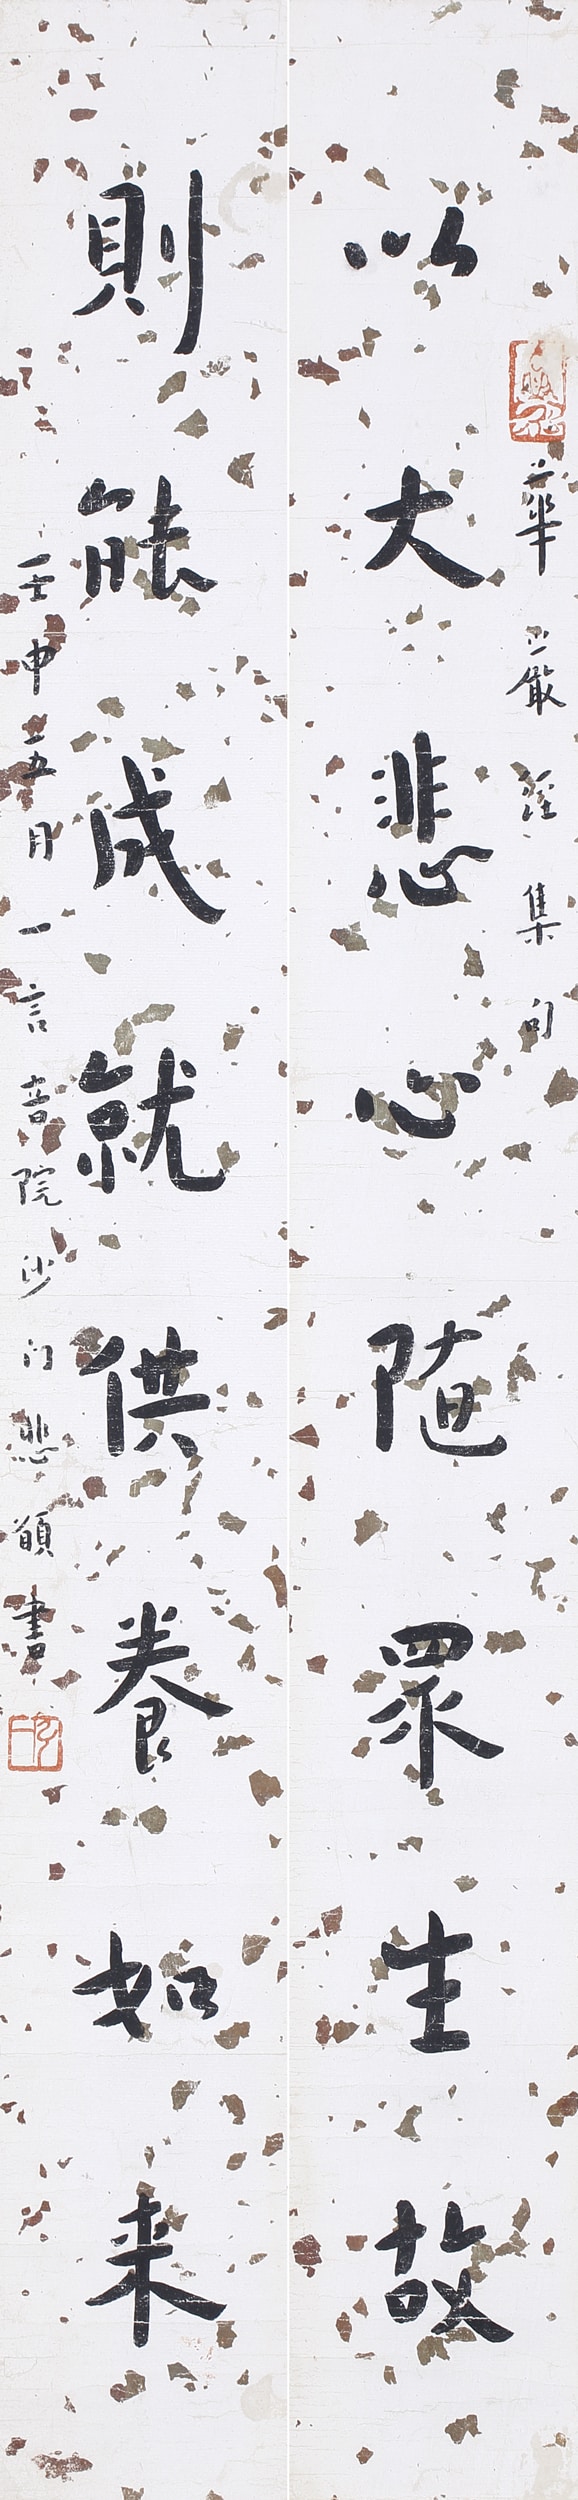 華嚴經集句
以大悲心随眾生故
則能成就供養如来
壬申五月一言音院沙门悲願書